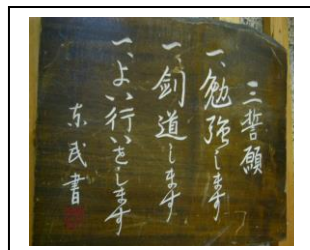 三誓願
一、勉強します
一、剣道します
一、よい行いをします
东武書